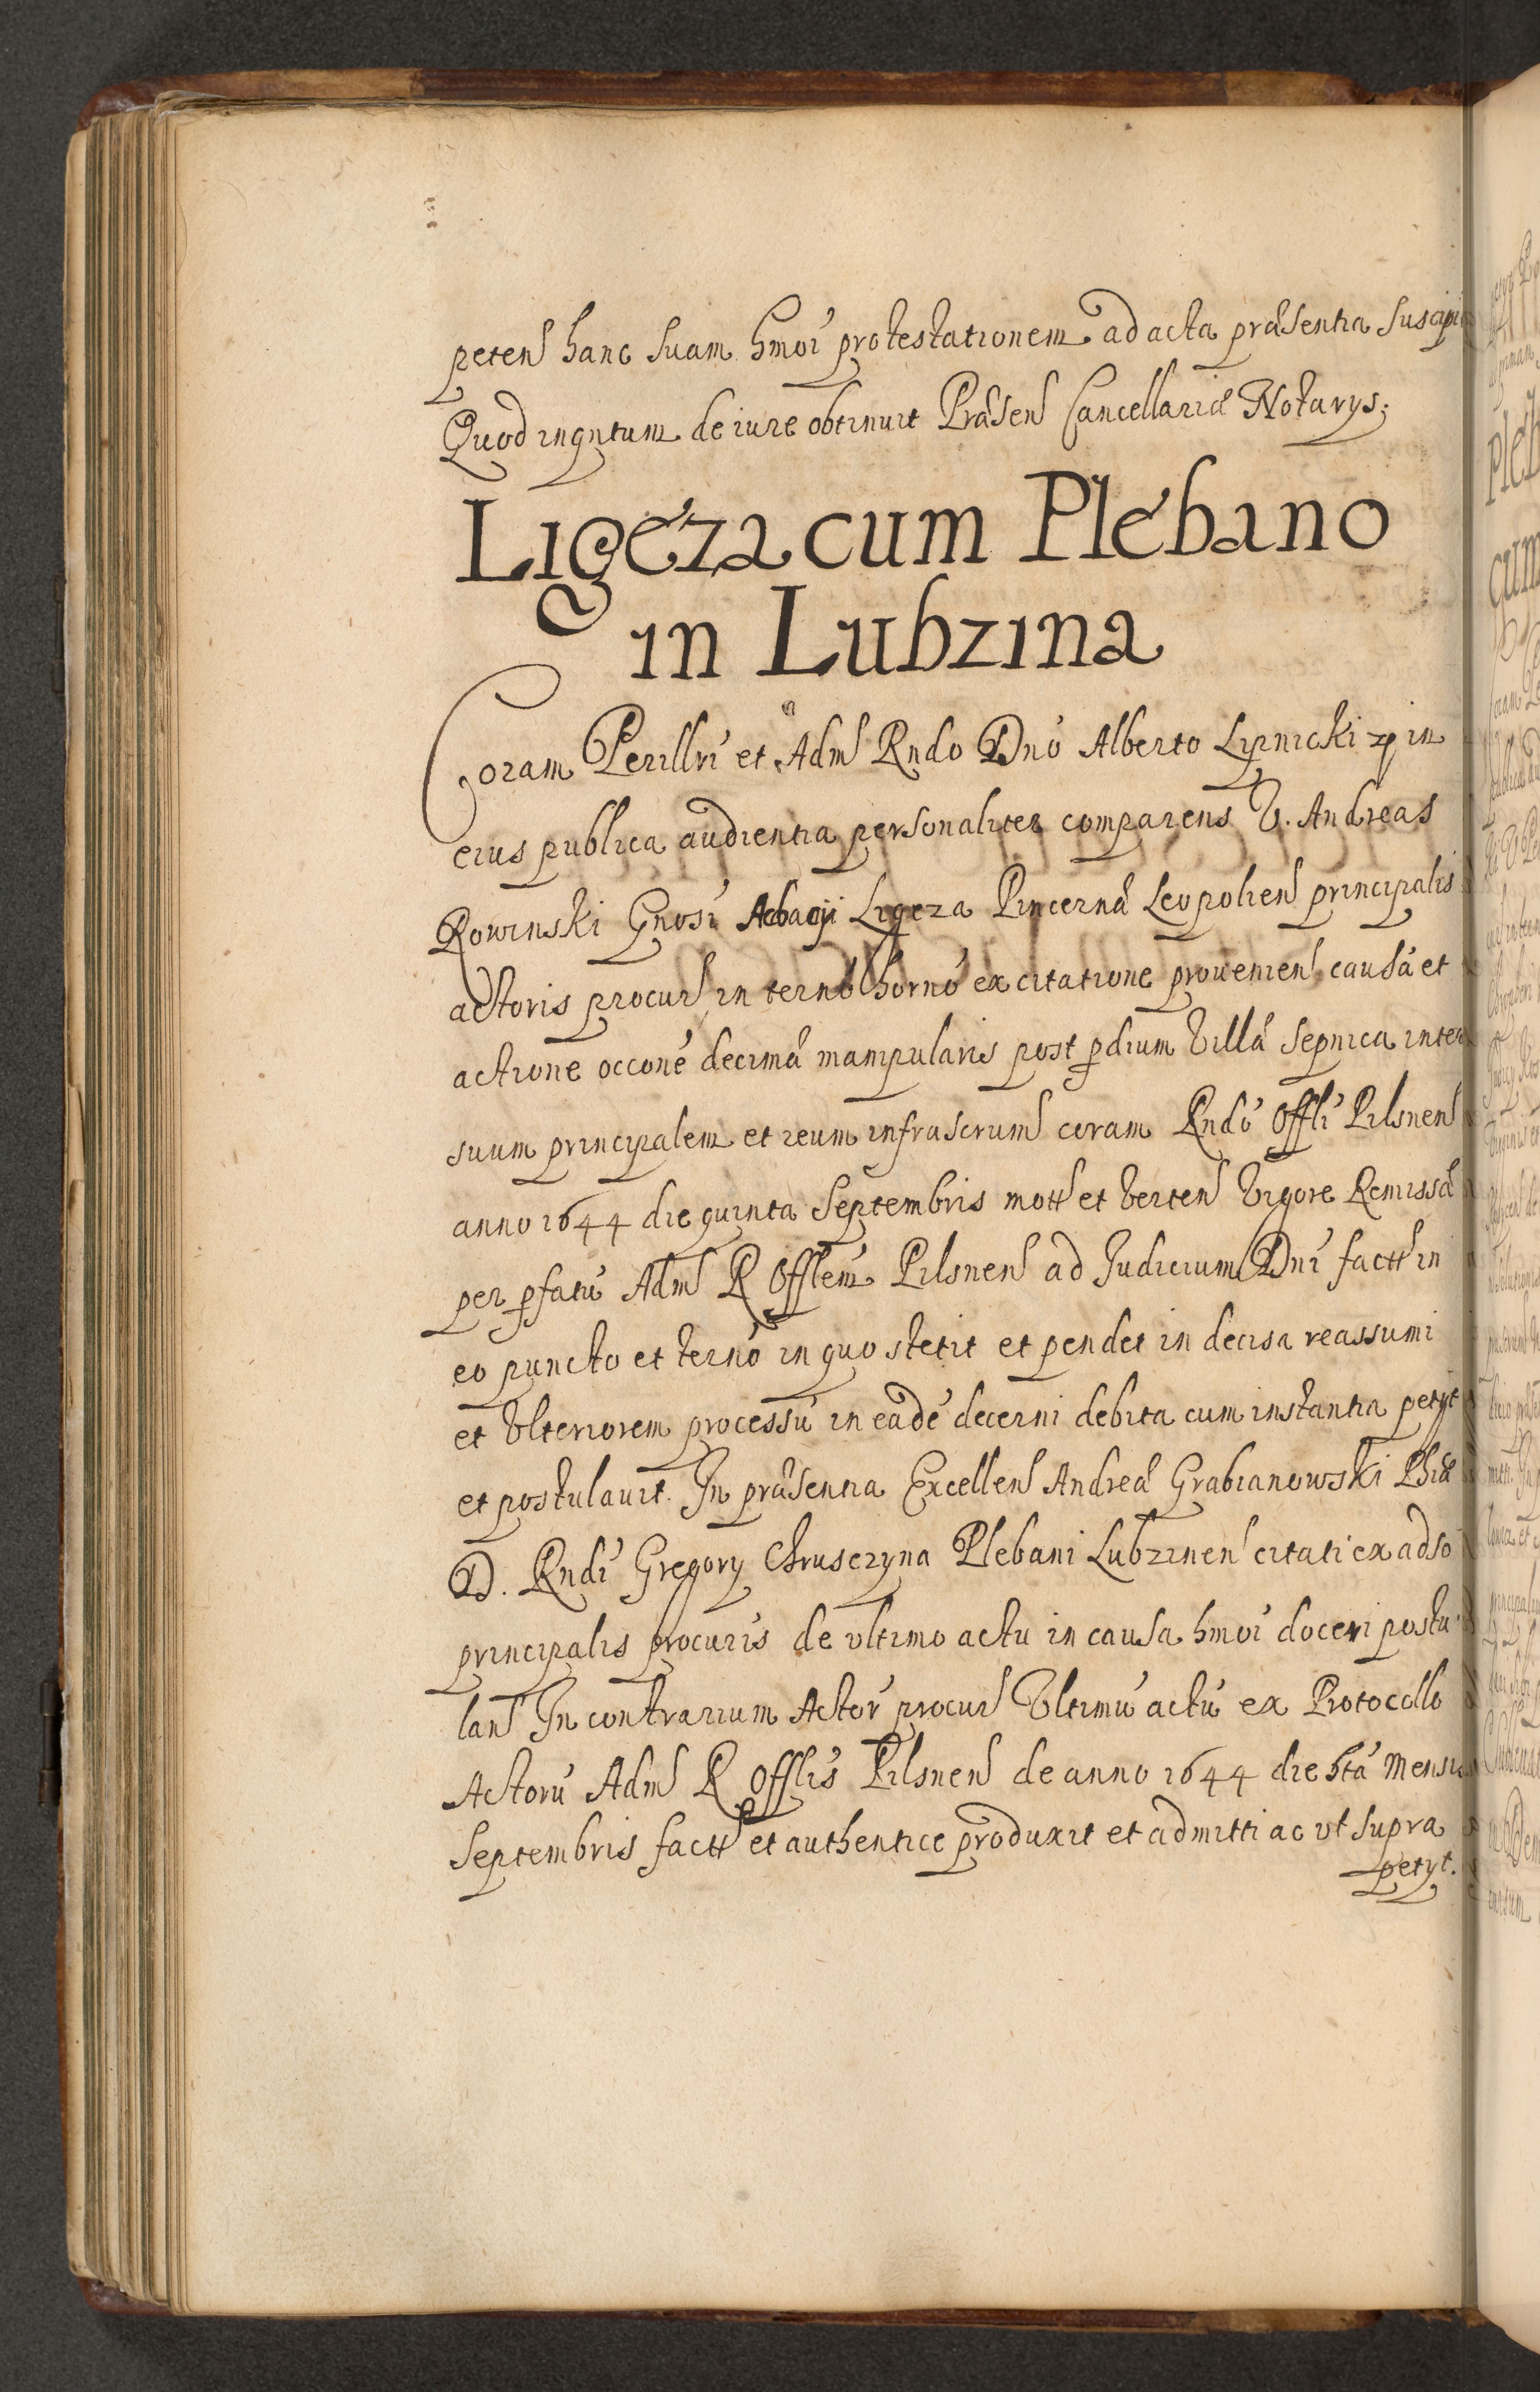 peten hanc suam hmoi protestationem ad acta præsentia suscipi
Quod inqntum de iure obtinuit Præsen Cancellariæ Notarys;
Ligeza cum Plebano
in Lubzina
Coram Perillri et Adm Rndo Dno Alberto Lipnicki in
eius publica audientia personaliter comparens V. Andreas
Rowinski Gnosi Ligeza Pincernæ Leopolien principalis
actoris procur in termo horno ex citatione provenien causa et
actione occone decimæ manipularis post pdium Villæ Sepnica inter
suum principalem et reum infrascrum coram Rndo Offli Pilsnen
anno 1644 die quinta Septembris mott et verten vigore Remissæ
per pfatu Adm R Offlem Pilsnen ad Judicium Dni factt in
eo puncto et termo in quo stetit et pendet in decisa reassumi
et Vlteriorem processu in eade decerni debita cum instantia petyt
et postulavit. In præsentia Excellen Andreæ Grabianowski Phiæ
D. Rndi Gregory Chrusczyna Plebani Lubzinen citati ex adso
principalis procuris de vltimo actu in causa hmoi doceri postu
lan In contrarium Actor procur Vltimu actu ex Protocollo
Actoru Adm R Offlis Pilsnen de anno 1644 die 5ta Mensis
Septembris factt et authentice produxit et admitti ac vt supra
petyt.